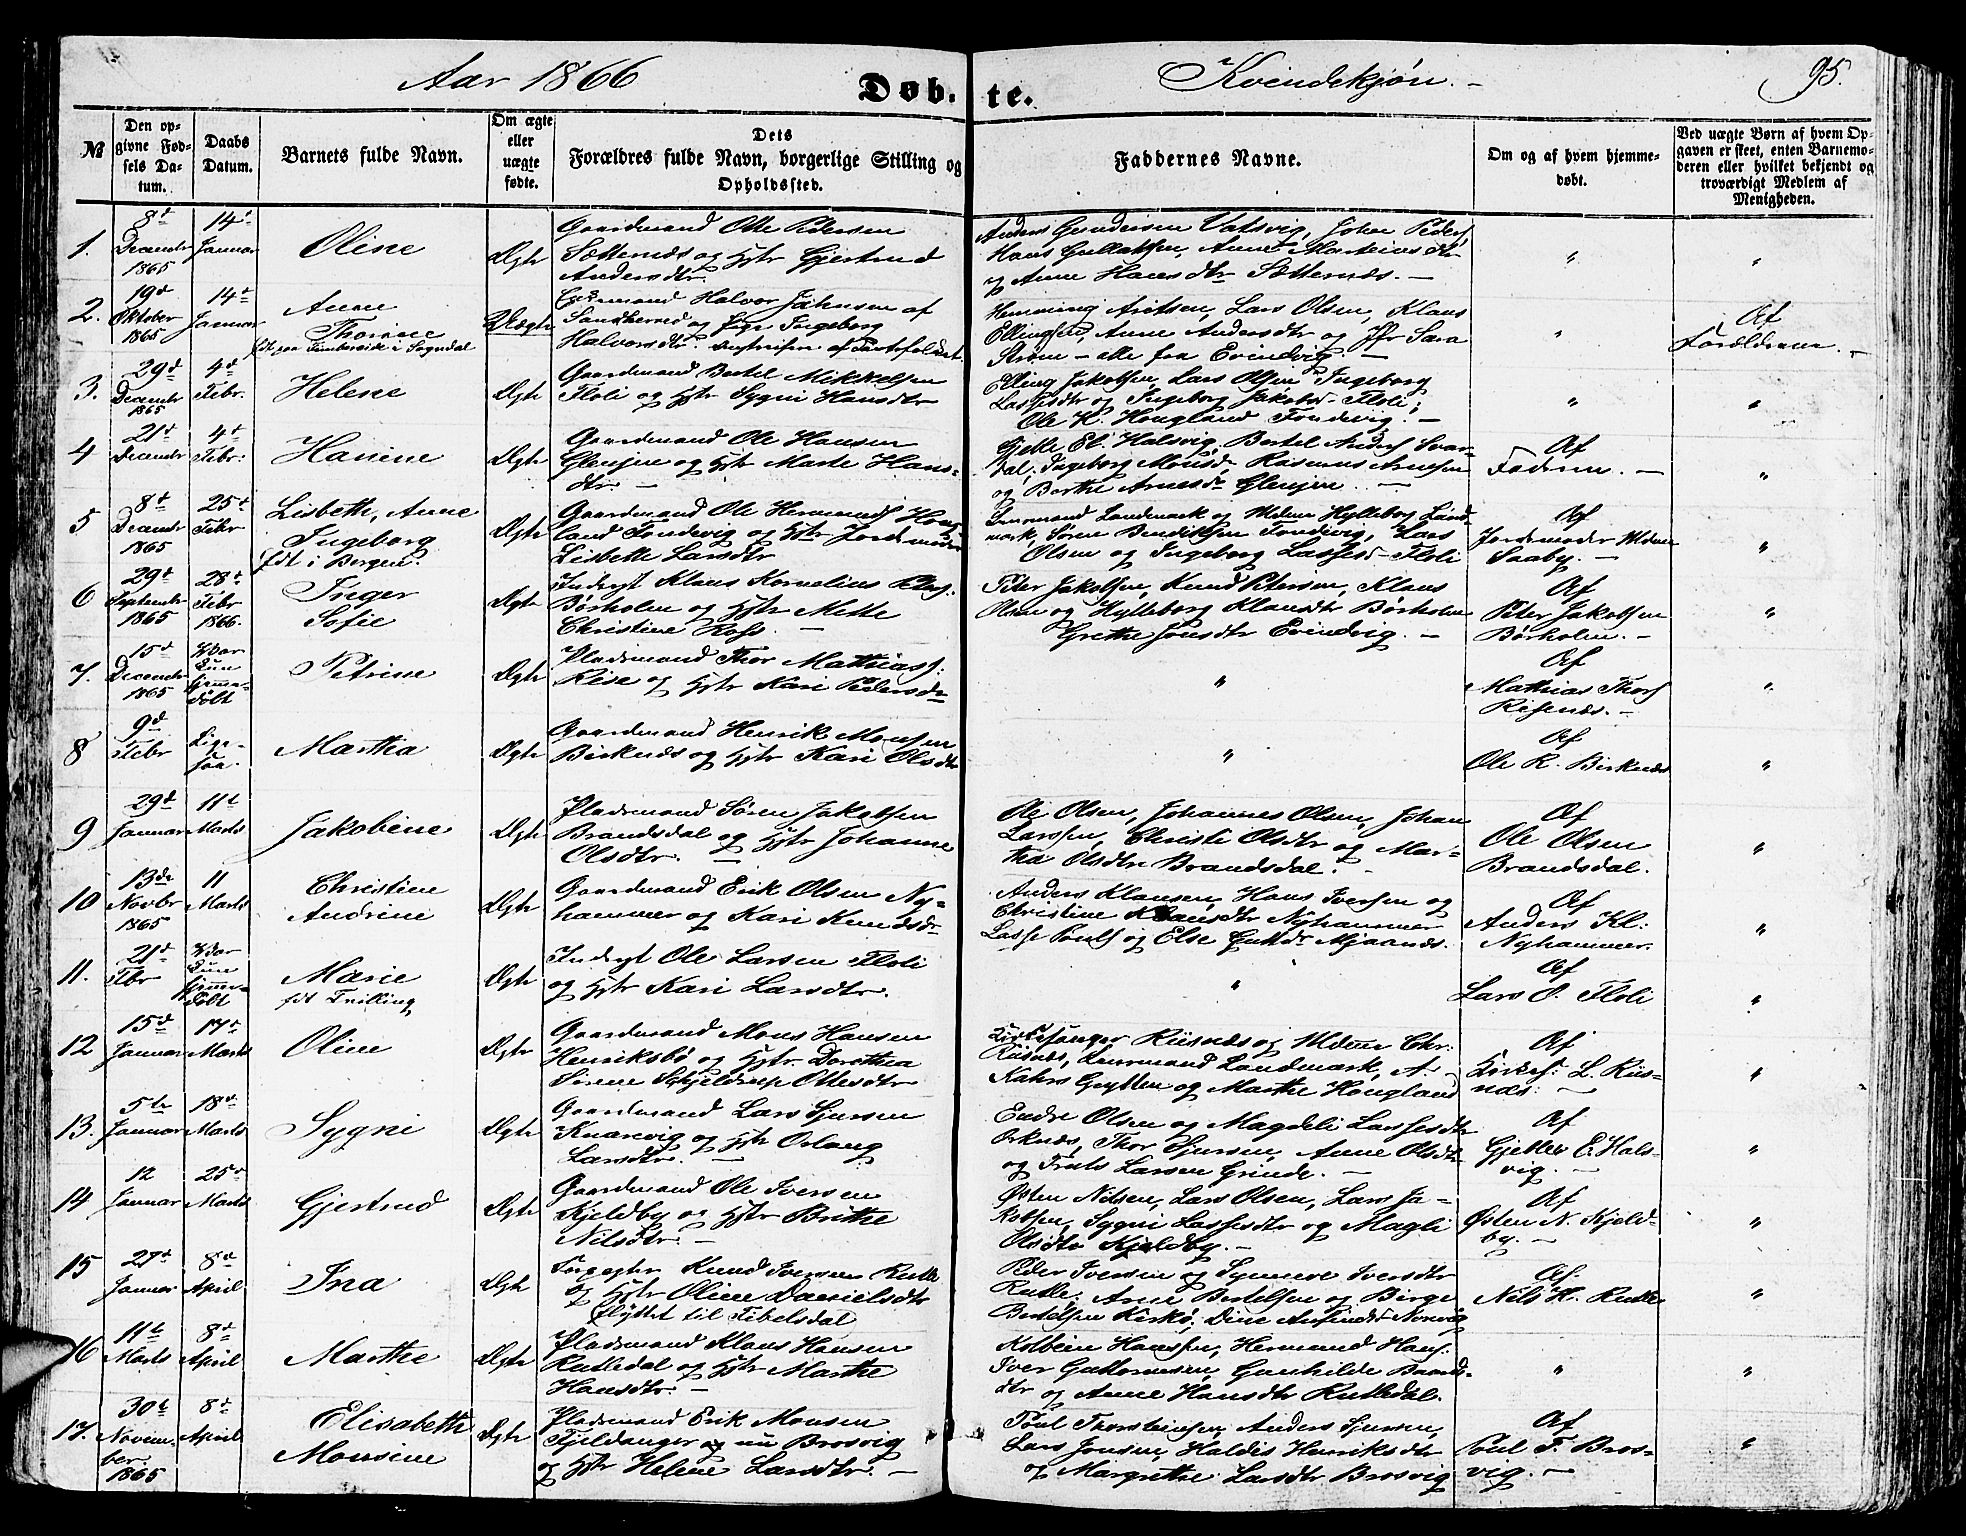 Aar 1866
Døb- te.
Kvindekjøn.
95.
№
Den op-
givne Fød-
sels Da-
tum.
Daabs
Datum.
Barnets fulde Navn.
Om ægte
eller
uægte
fødte.
Dets
Forældres fulde Navn, borgerlige Stilling og
Opholdssted.
Faddernes Navne.
Om og af hvem hjemme-
døbt.
Ved uægte Børn af hvem Op-
gaven er skeet, enten Barnemo-
deren eller hvilket bekjendt og
troværdigt Medlem af
Menigheden.
1. 8d Decembr 1865
14d Januar
Oline
Ægte
Gaardmand Otte Pedersen
Sætternæs og Hstr Gjertrud
Andersdtr.
Anders Gundersen Vatsvig, Johan Peders
Hans Gullaksen, Anne Martinusdtr
og Anne Hansdtr Sætternæs. –
"
"
2. 19d Oktober 1865
14d Januar
Anne
Thorine
Uægte
Halvor Johnsen af
Sandhered og Pige Ingeborg
Halvorsdtr.
Hemming Lars Olsen, Klaus
Ellingsen, Anne Andersdtr og Jfr Sara
Strøm – alle fra Evindvig –
"
Af
Forældrene. –
3. 29d Decembr 1865
4d Febr.
Helene
Ægte
Gaardmand Bertel Mikkelsen
Floli og Hstr Sygni Hansdtr
Elling Jakobsen, Lars Olsen, Ingeborg
Lassesdtr og Ingeborg Jakobsd Floli,
Ole H. Hougland Fondevig. –
"
"
4 21d Decembr
4d Febr:
Hanine
Ægte
Gaardmand Ole Hansen
Glenjen og Hstr Marte Hans-
dtr. –
Gjelle El. Halsvig, Bertel Anders Svar-
dal, Ingeborg Monsd, Rasmus Arnesen
og Berthe Arnesdr Glenjen. –
Af
Faderen. –
"
5 8d Decembr 1865
25d Febr
Lisbeth, Anne
Ingeborg
fdt i Bergen.
Ægte
Gaardmand Ole Hermunds Houg-
land Fondevig og Hstr Jordemoder
Lisbeth Larsdtr
Lensmand Landmark og Mdme Hylleborg Land-
mark, Søren Bendiksen Fondevig, Lars
Olsen og Ingeborg Lassesd Floli
Af
Jordemoder Mdme
Saaby. –
"
6 29d Septembr 1865
28d Febr 1866.
Inger
Sofie
Ægte
Inderst Klaus Kornelius Peders:
Børholm og Hstr Mette
Christine Ross. –
Peter Jakobsen, Knud Petersen, Klaus
Olsen og Hylleborg Klausdtr Børholm
Grethe Jonsdtr Evindvig. –
Af
Peter Jakobsen
Børholm. –
"
7. 15d Decembr 1865
Var
kun
hjemme-
døbt
Petrine
Ægte
Pladsmand Thor Mathias:
Rise og Hstr Kari Pedersdr
"
Af
Mathias Thors
Risenæs. –
"
8 9d Febr
Lige-
saa.
Marthea
Ægte
Gaardmand Henrik Monsen
Birknæs og Hstr Kari Olsdtr
"
Af
Ole R. Birknæs
"
9 29d Januar
11t Marts
Jakobine
Ægte
Pladsmand Søren Jakobsen
Brandsdal og Hstr Johanne
Olsdtr. –
Ole Olsen, Johannes Olsen, Johan
Larsen, Christi Olsdtr og Mar-
tha Olsdtr Brandsdal. –
Af
Ole Olsen
Brandsdal.
"
10 13de Novbr 1865
11 Marts
Christine
Andrine
Ægte
Gaardmand Erik Olsen Ny-
hammer og Kari Knudsdr
Anders Klausen, Hans Iversen og
Christine Klausdtr Nyhammer
Lasse Pouls og Else Mjaanæs.
Af
Anders Kl:
Nyhammer.
"
11. 21d Febr
Var
kun
hjemme-
døbt
Marie
fdt Trilling
Ægte
Inderst Ole Larsen Floli
og Hstr Kari Larsdtr.
"
Af
Lars O. Floli
"
12 15d Januar
17d Marts
Oline
Ægte
Gaardmand Mons Hansen
Henriksbø og Hstr. Dorothea
Sirene Schjeldrup Ottesdtr
Kirkesanger Riisnæs og Mdme Chr:
Riisnæs, Lensmand Landmark, A.
Grytten og Marthe Hougland
Af
Kirkes: L. Riis-
næs: –
"
13. 5te Januar
18d Marts
Sygni
Ægte
Gaardmand Lars Sjursen
Knarvig og Hstr Orlaug
Larsdtr. –
Endre Olsen og Magdeli Larssesdtr
Orknæs, Thor Sjursen, Anne Olsdtr
og Truls Larsen Grinde. –
Af
Gjeller E. Hals-
vig. –
"
14 12 Januar
25d Marts
Gjertrud
Ægte
Gaardmand Ole Iversen
Kjeldby og Hstr Brithe
Nilsdtr. –
Østen Nilsen, Lars Olsen, Lars Ja-
kobsen, Sygni Lassesdtr og Magli
Olsdtr Kjeldby. –
Af
Østen N. Kjeld-
by. –
"
15 27d Januar
8d April
Ina
Ægte
Knud Iversen Rutle
og Hstr Oline Danielsdtr
flyttet til Tibelsdal
Peder Iversen og Synneve Iversdtr
Rutle, Arne Bertelsen og Birge
Bertelsen Kirkø, Dine
Af
Nils K. Rutle
"
16 11te Marts
8d April
Marthe
Ægte
Pladsmand Klaus Hansen
Rutledal og Hstr Marthe
Hansdtr. –
Kolbein Hanssen, Hermund Hans:
Iver Guttormsen, Gunhilde Baards-
dtr og Anne Hansdtr Rutledal.
"
"
17. 30te Novem-
ber. 1865
8d April
Elisabeth
Monsine
Ægte
Pladsmand Erik Monsen
Fjeldanger og nu Brosvig
og Hstr Helene Larsdtr. –
Poul Thorsteinsen, Anders Sjursen,
Lars Jonsen, Haldis Henriksdtr
og Margrethe Larsdtr Brosvig
Af
Poul T. Bros-
vig. –
"